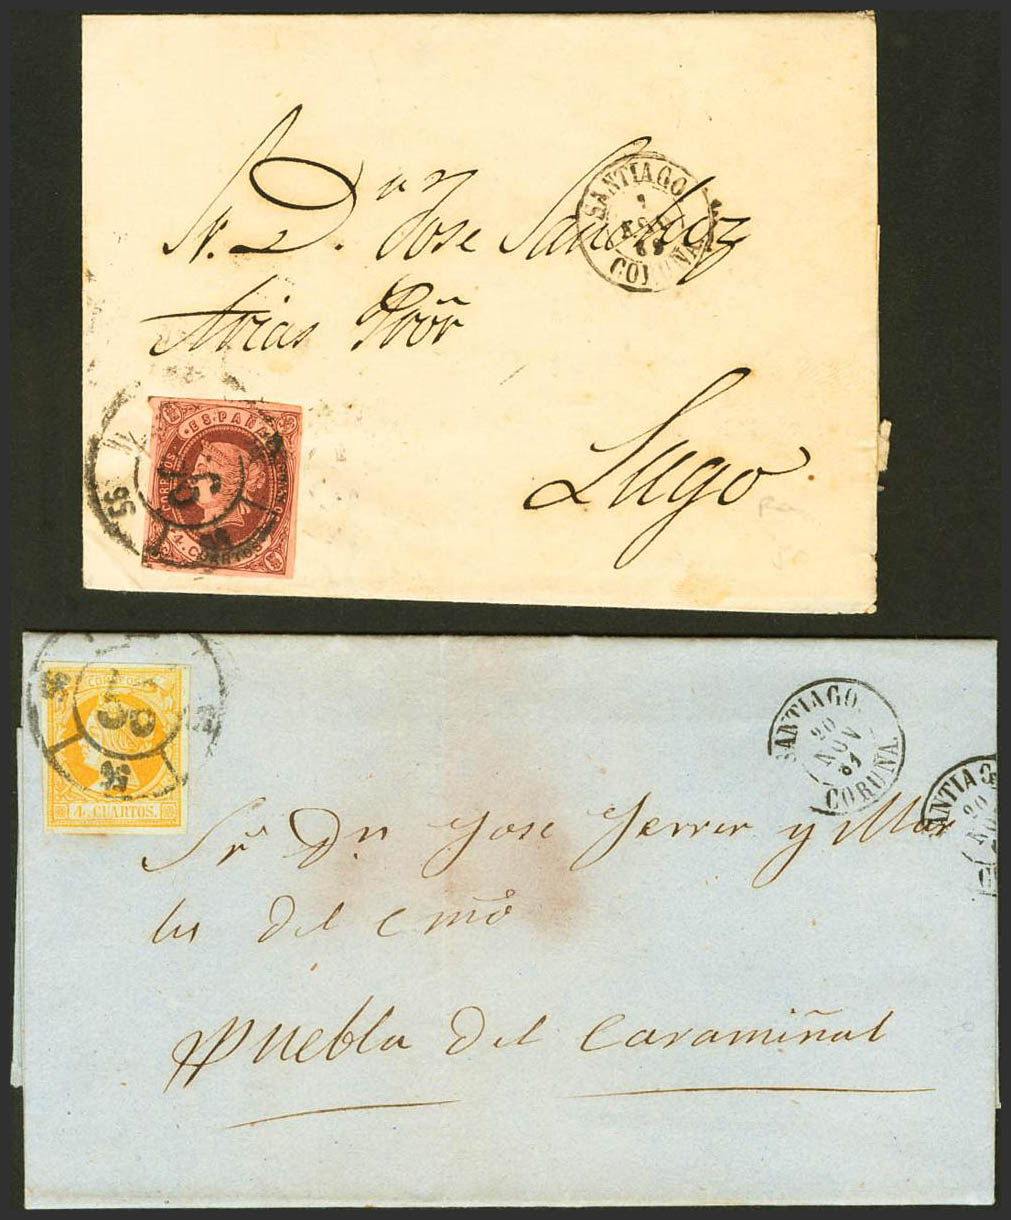 Sr. Dn
D. Jose Sanchez
Arias Pbro
Lugo
SANTIAGO
7
63
CORUÑA
ESPAÑA
CORREOS
4. CUARTOS
56
56
CORREOS
4. CUARTOS.
56
SANTIAGO.
20
NOV
61
CORUÑA.
SANTIAG
20
Sr Dn Jose Ferrer y
del
Puebla del Caramiñal